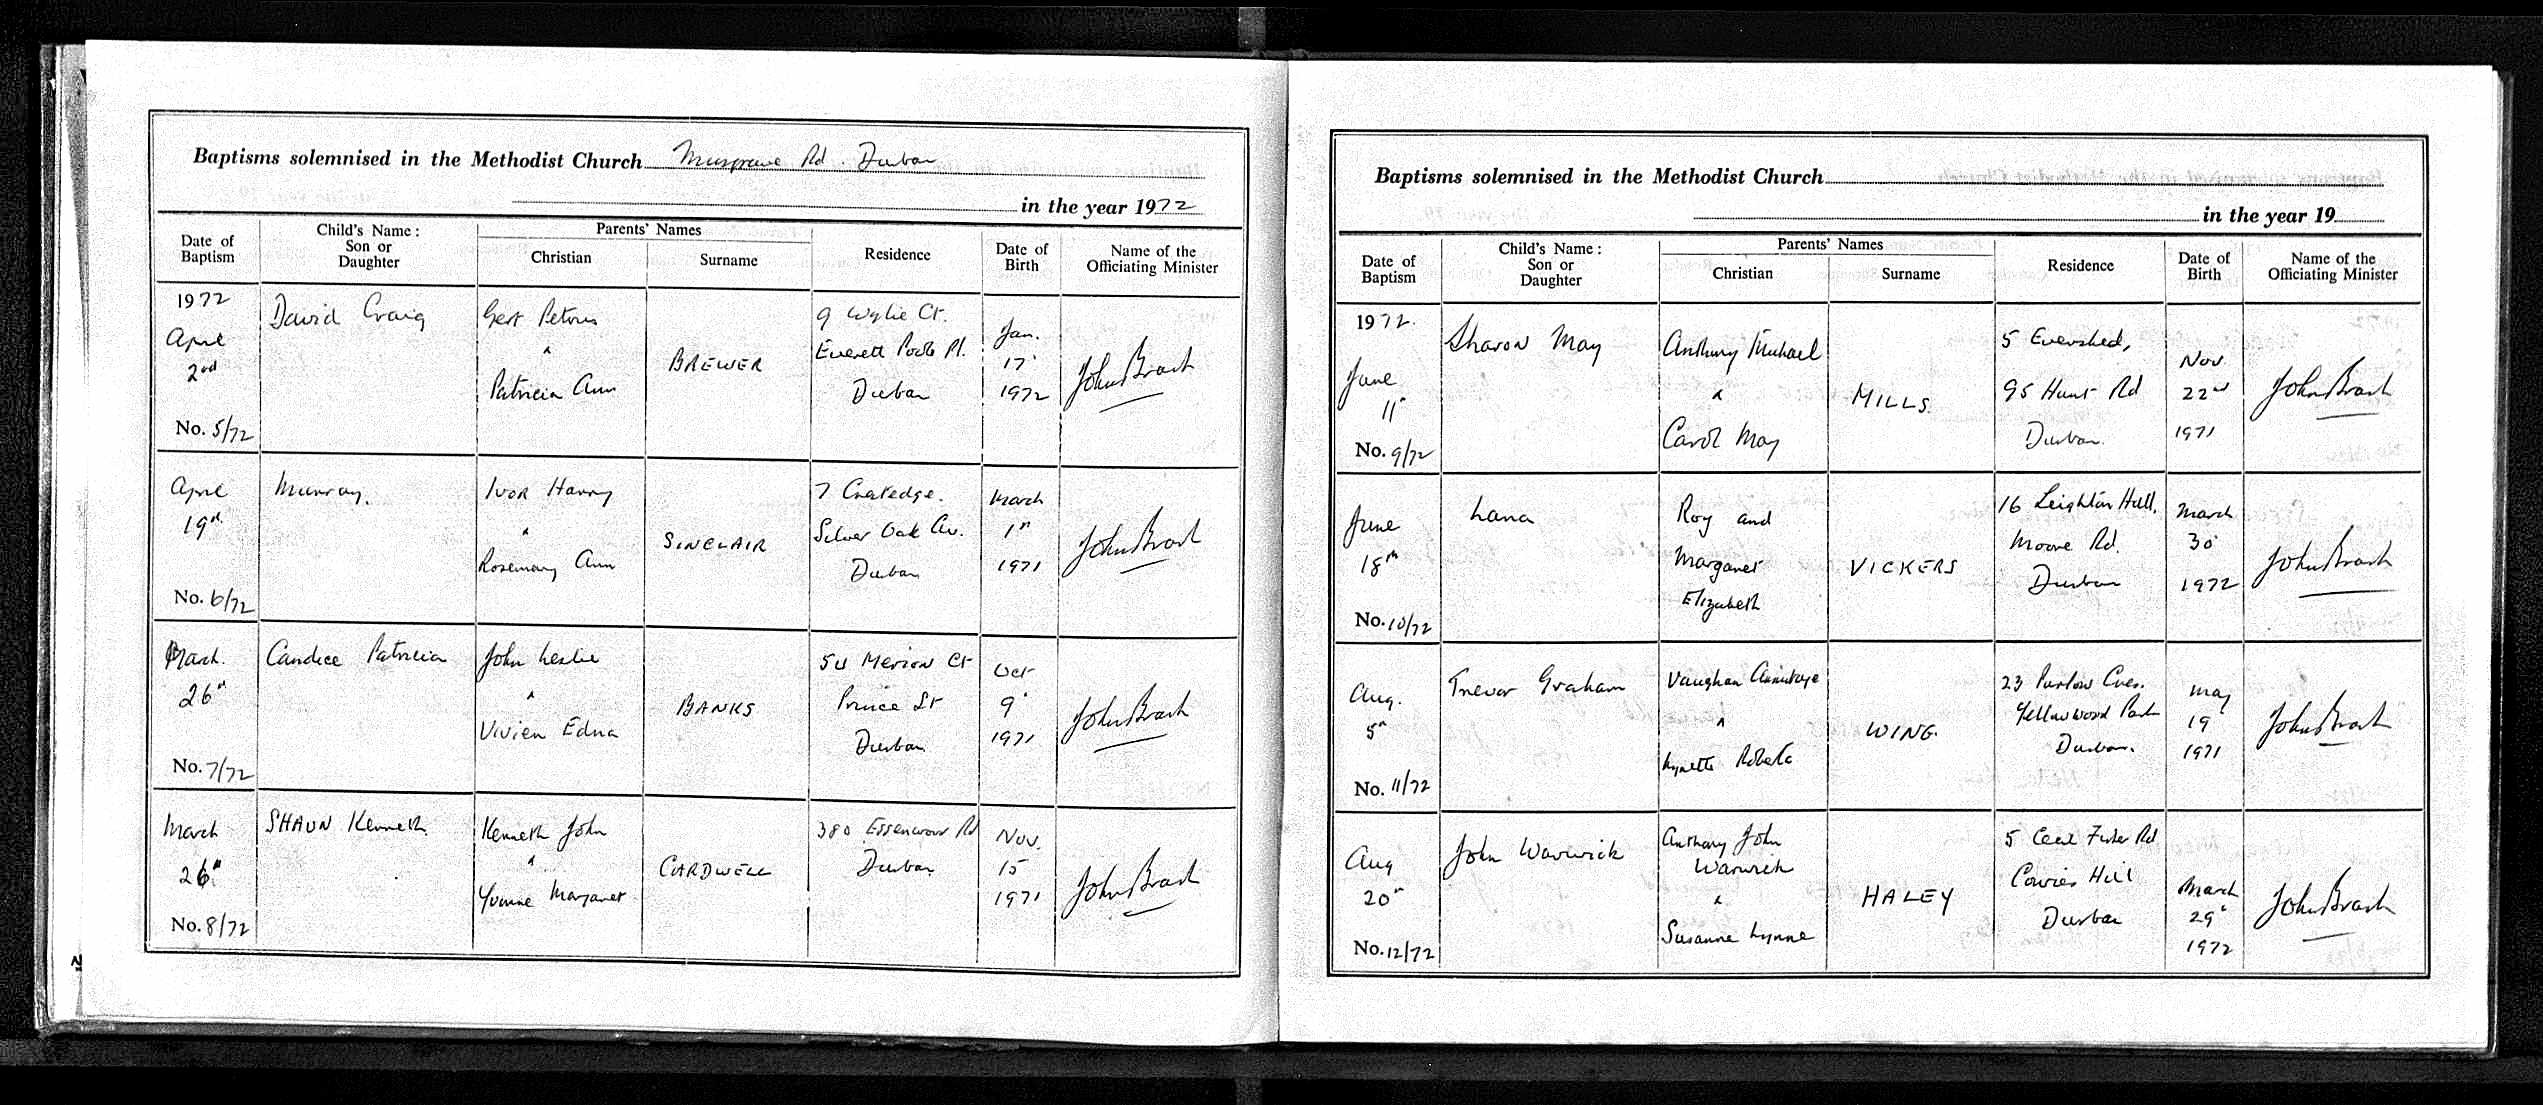 Baptisms solemnised in the Methodist Church Musgrave Rd. Durban
in the year 1972
Date of Baptism
Child's Name: Son or Daughter
Parents' Names
Christian
Surname
Residence
Date of Birth
Name of the Officiating Minister
1972
April
2nd
No. 5/72
David Craig
Gert Petrus
&
Patricia Ann
BREWER
9 Wylie Ct.
Everett Poole Pl.
Durban
Jan.
17
1972
John Brash
April
19th
No. 6/72
Murray.
Ivor Harry
&
Rosemary Ann
SINCLAIR
7
Silver Oak Av.
Durban
March
1st
1971
John Brash
March.
26th
No. 7/72
Candice Patricia
John Leslie
&
Vivien Edna
BANKS
54 Merion Ct
Prince St
Durban
Oct
9
1971
John Brash
March
26th
No. 8/72
SHAUN Kenneth
Kenneth John
&
Yvonne Margaret
CARDWELL
380 Essenwood Rd
Durban
Nov.
15
1971
John Brash
Baptisms solemnised in the Methodist Church
in the year 19
Date of Baptism
Child's Name: Son or Daughter
Parents' Names
Christian
Surname
Residence
Date of Birth
Name of the Officiating Minister
1972.
June
11th
No. 9/72
Sharon May
Anthony Michael
&
Carol May
MILLS.
5 Evershed,
95 Hunt Rd
Durban.
Nov.
22nd
1971
John Brash
June
18th
No. 10/72
Lana
Roy and
Margaret
Elizabeth
VICKERS
16 Leighton Hall,
Moore Rd.
Durban
March
30
1972
John Brash
Aug.
5th
No. 11/72
Trevor Graham
Vaughan Armitage
&
Lynette Roberta
WING.
23 Purlow Cres.
Yellowwood Park
Durban.
May
19
1971
John Brash
Aug
20th
No. 12/72
John Warwick
Anthony John
Warwick
&
Susanne Lynne
HALEY
5 Cecil Fuller Rd
Cowies Hill
Durban
March
29th
1972
John Brash